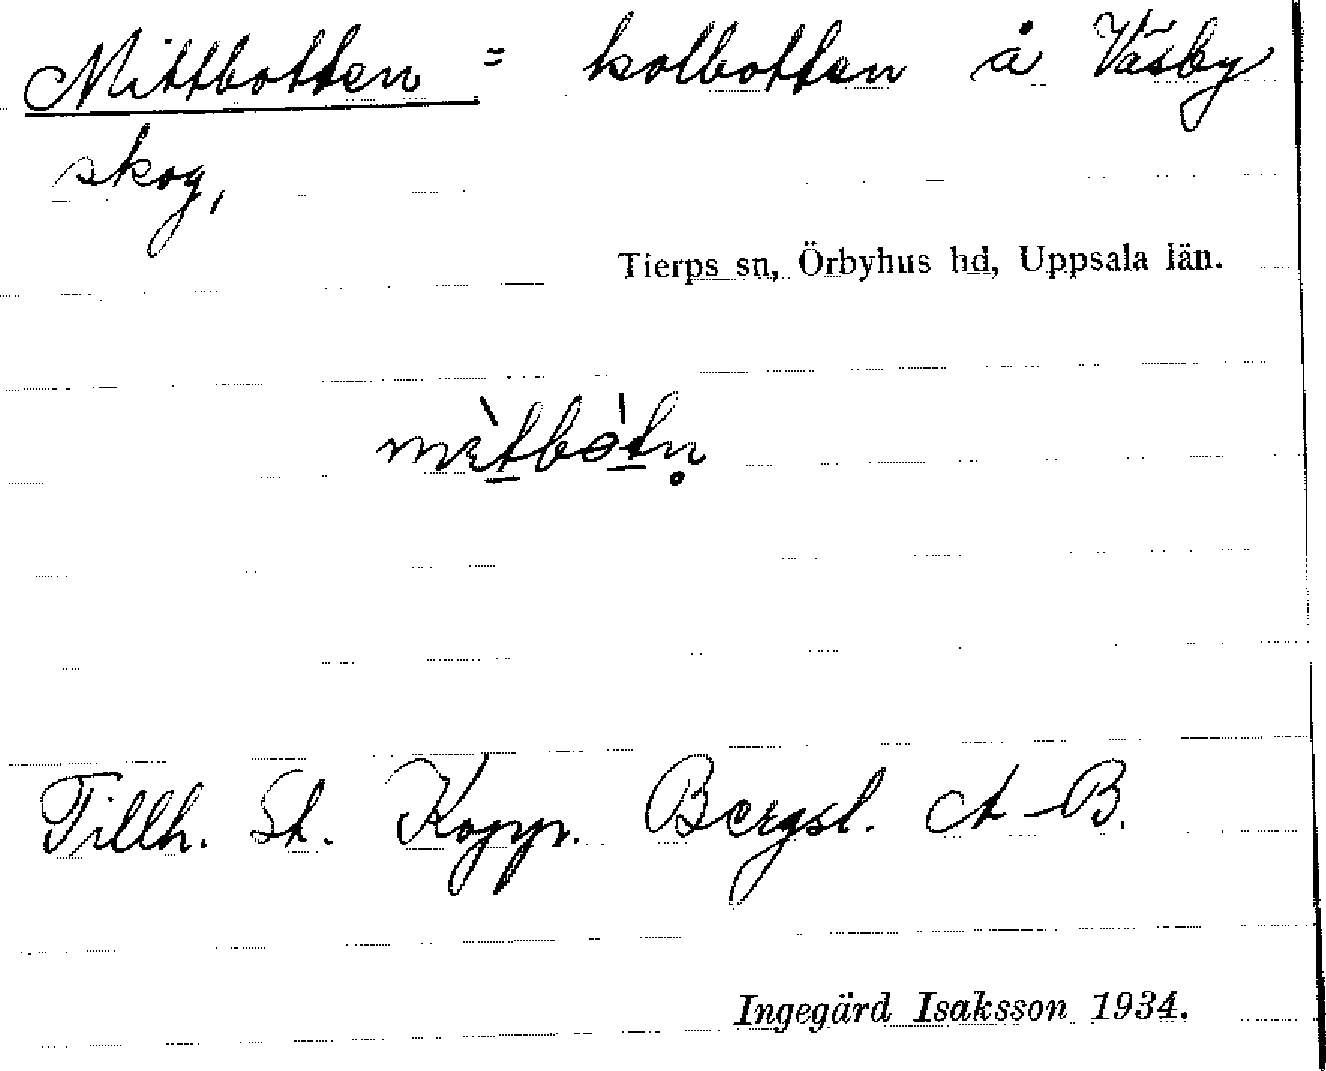 Mittbotten = kolbotten å Väsby
skog,
Tierps sn, Örbyhus hd, Uppsala län.
mètbòtn̥
Tillh. St. Kopp. Bergsl. A-B.
Ingegärd Isaksson 1934.